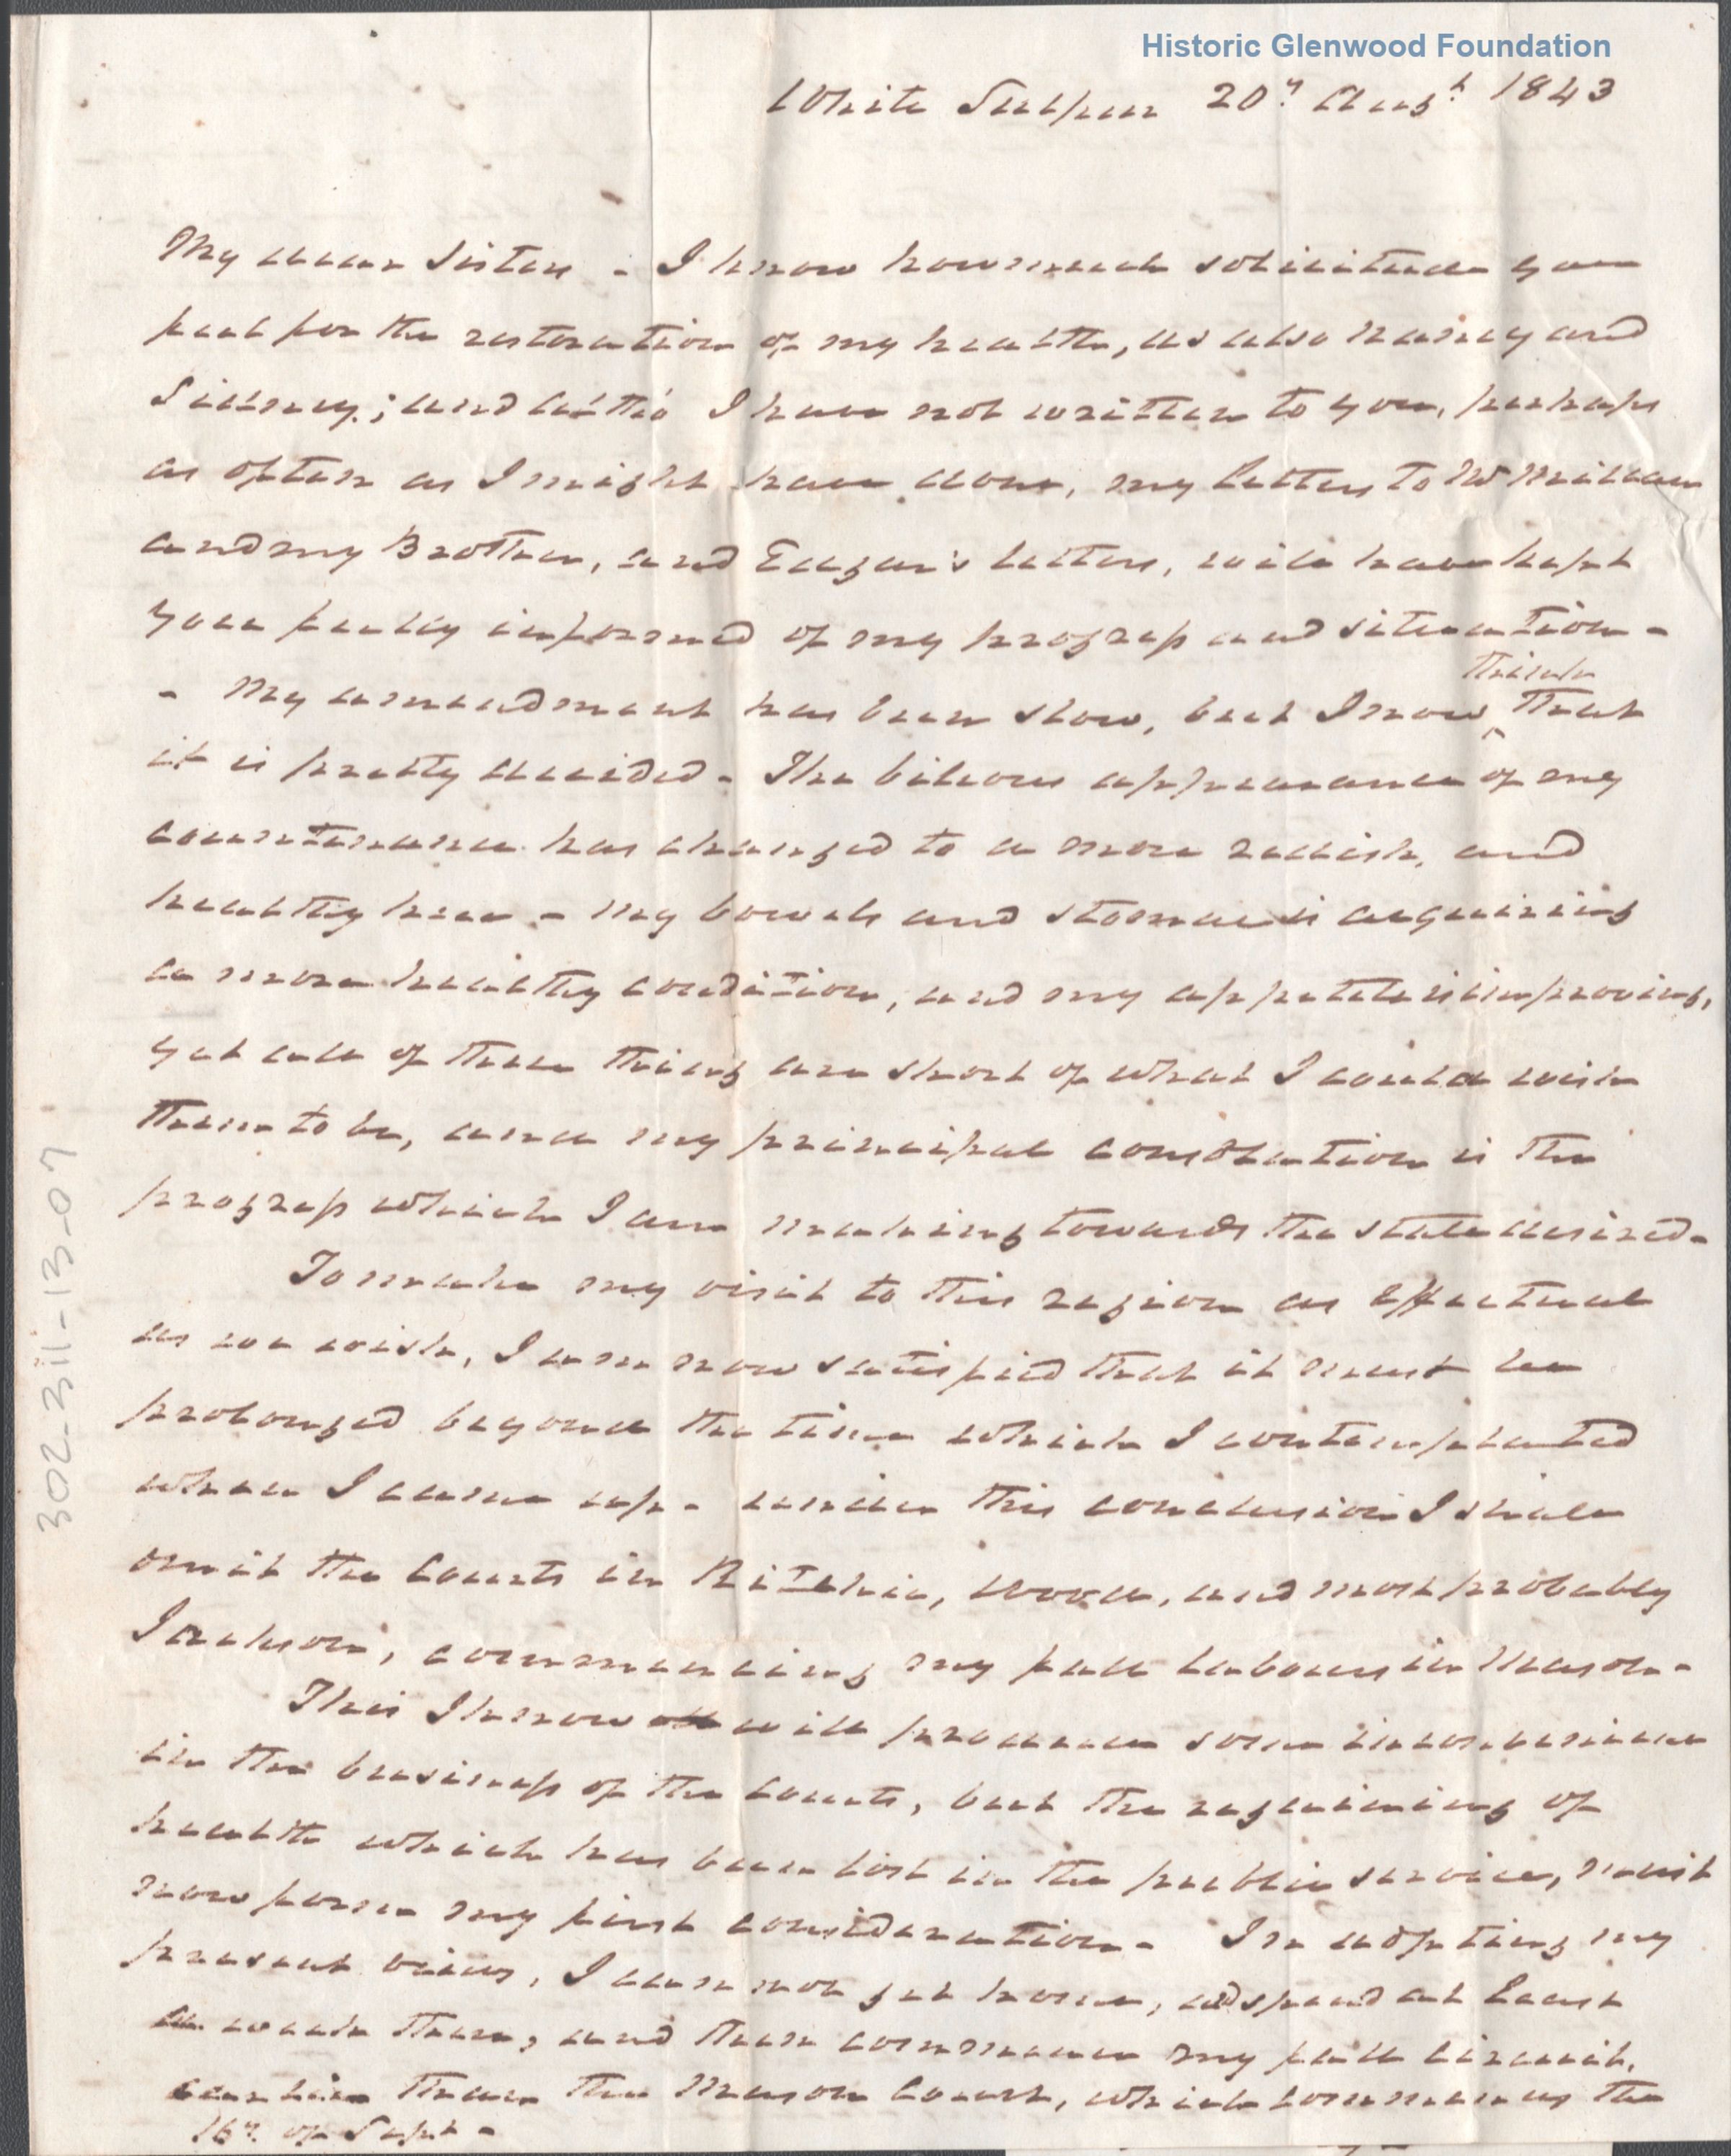 Historic Glenwood Foundation
White Sulphur 20th Augt 1843
My dear Sister - I know how much solicitude you
feel for the restoration of my health, as also nancy and
Sidney; and altho I have not written to you, perhaps
as often as I might have done, my letters to
and my Brother, and letters, will have kept
you fully informed of my progress and situation -
- My amendment has been slow, but I now think that
it is pretty decided - The bilious appearance of my
countenance has changed to a more redish, and
healthy hue - my bowels and stomac is acquiring
a more healthy condition, and my appetite is improving,
yet all of these things are short of what I could wish
them to be, and my principal consolation is the
progress which I am making towards the state desired -
To make my visit to this region as effectual
as we wish, I am now satisfied that it must be
prolonged beyond the time which I contemplated
when I came up - under this conclusion I shall
omit the Courts in Ritchie, Wood, and most probably
Jackson, commencing my fall labours in Mason -
This I know will produce some inconvenience
in the business of the Courts, but the regaining of
health which has been lost in the public service, must
now form my first consideration - In adopting my
present views, I can not get home, and spend at least
a week there, and then commence my fall circuit,
earlier than the Mason Court, which commences the
16th of Sept -
302-311-13-07